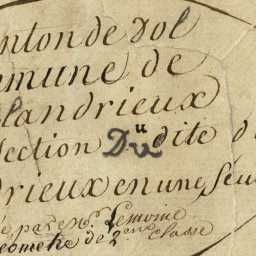 anton de dol
mmune de
landrieux
Section D dite d
drieux en une Seu
par Mr. Lemoine
éometre de 2eme Classe